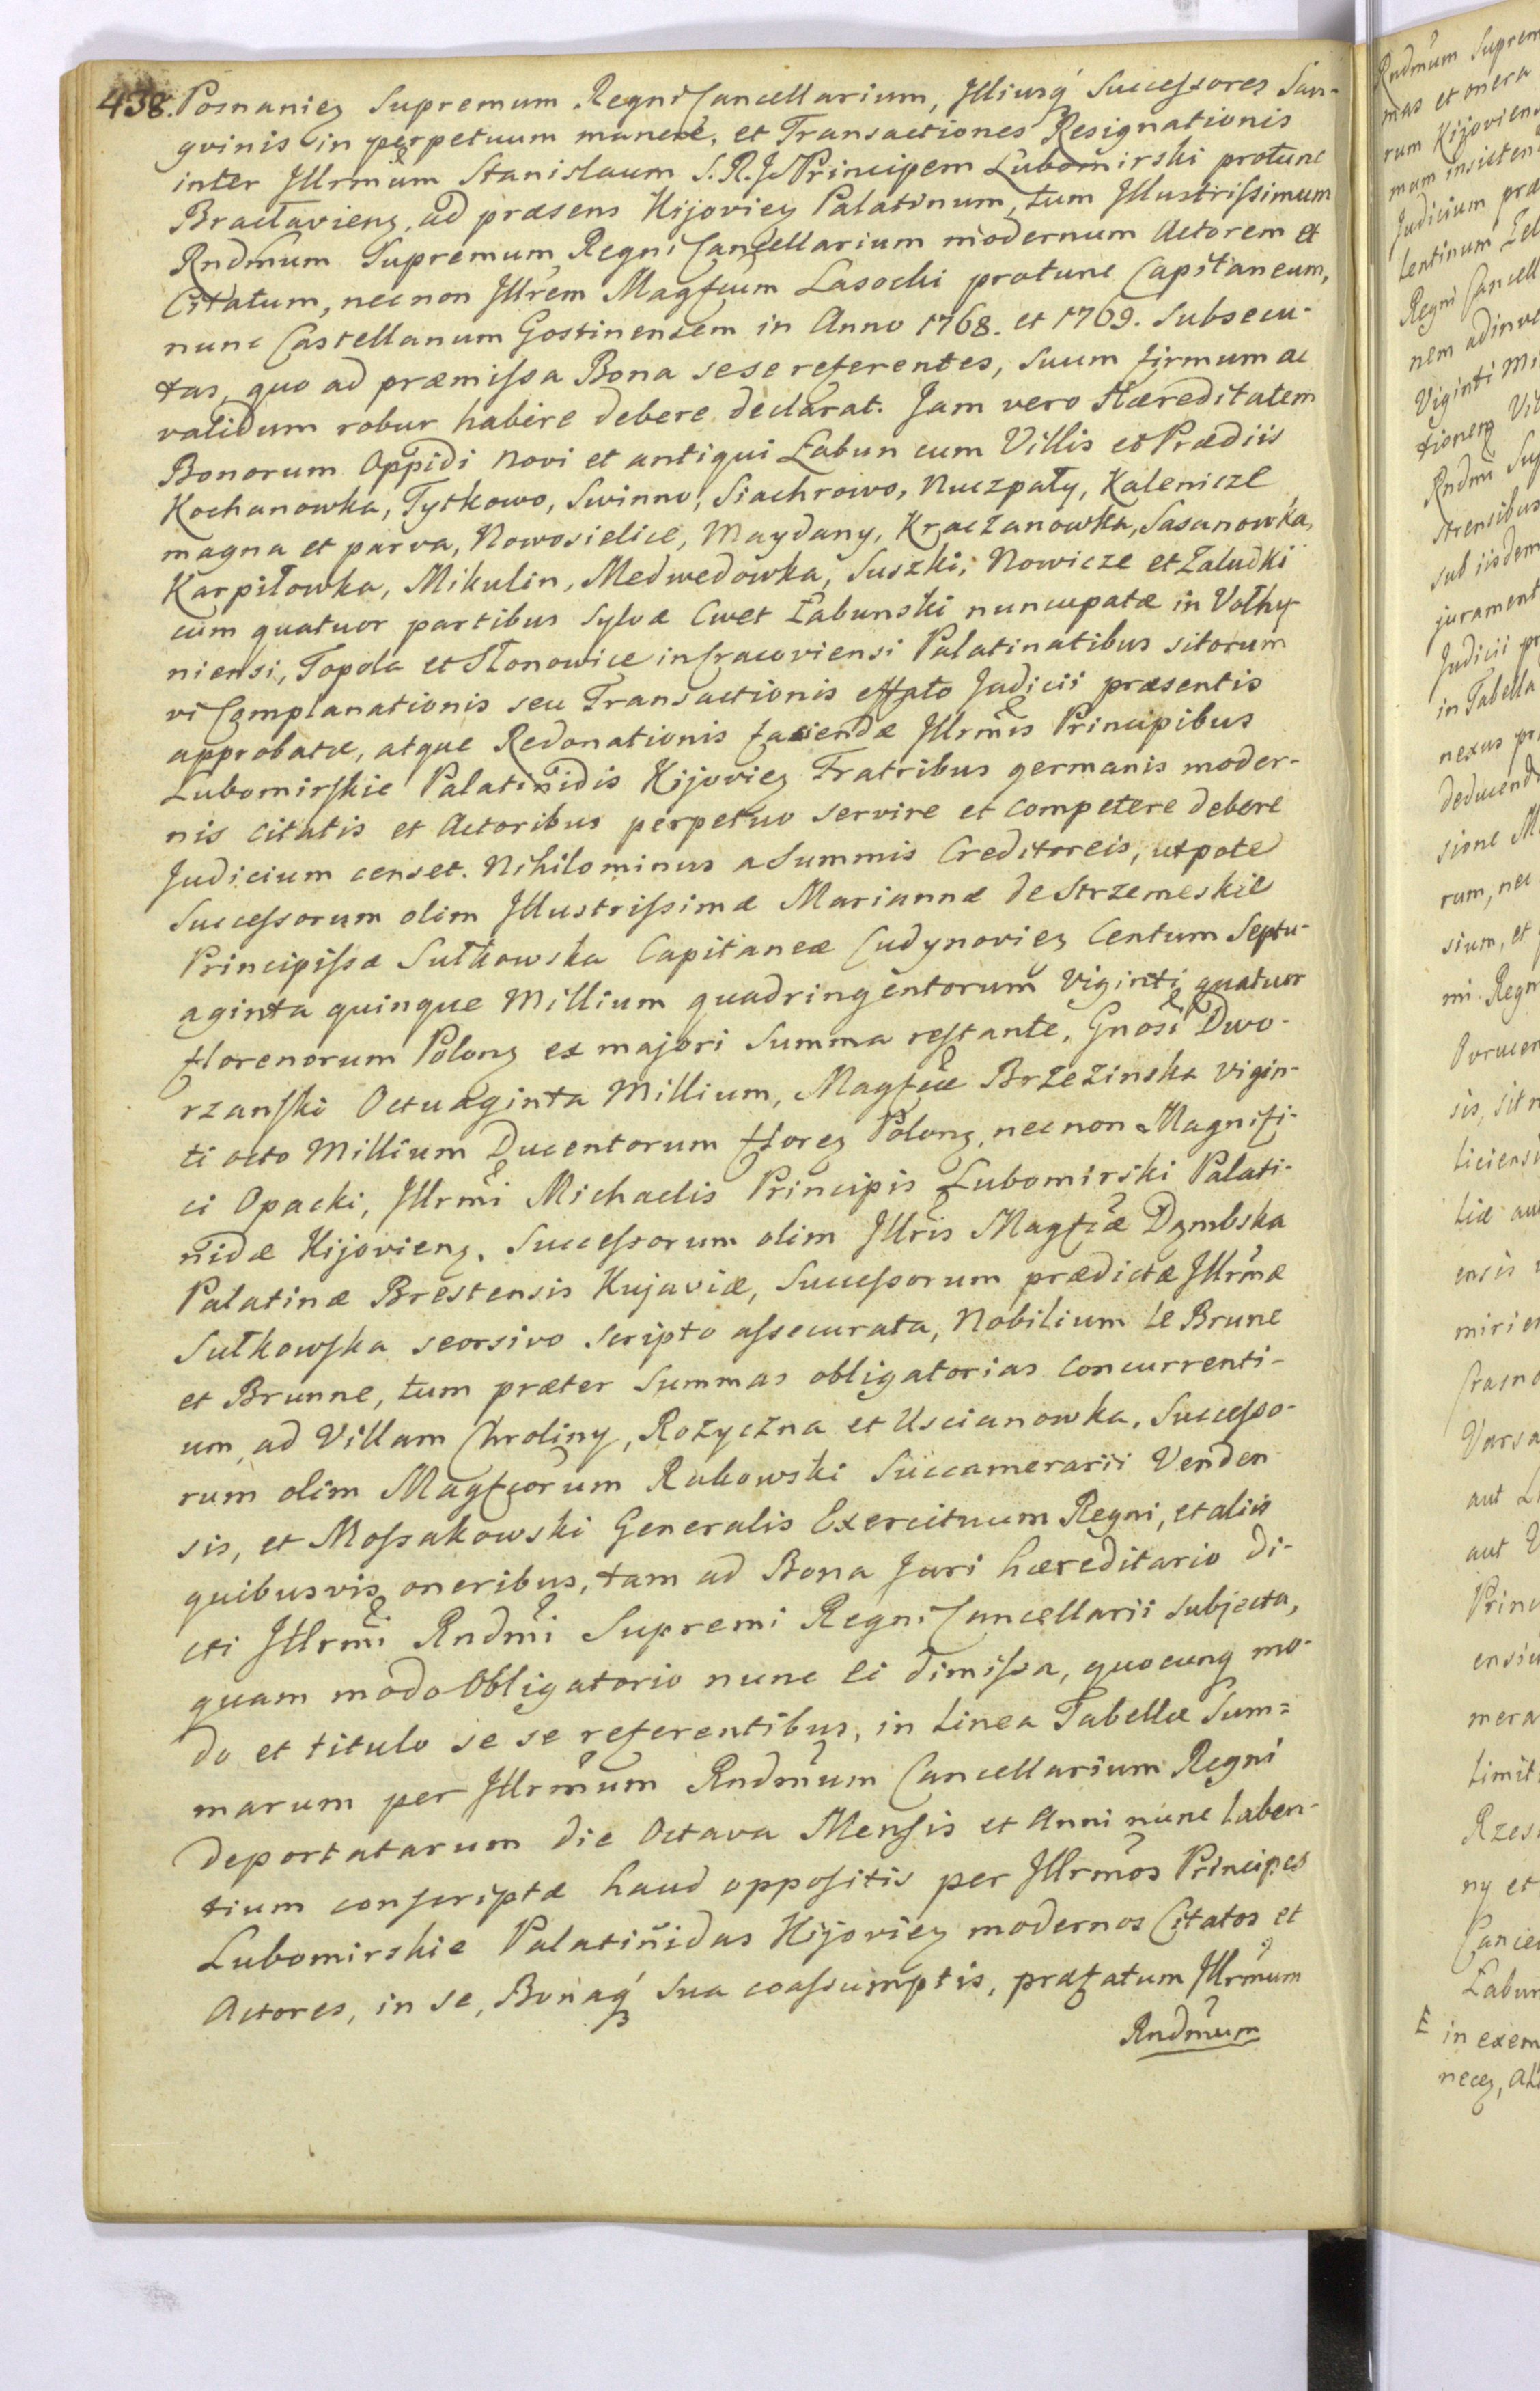 438. Posnanieỹ Supremum Regni Cancellarium, Illiusq́ Successores San-
gvinis in perpetuum manere, et Transactiones Resignationis
inter Illrmum Stanislaum S. R. J. Principem Lubomirski protunc
Braclavienỹ, ad præsens Kijovieỹ Palatinum, tum Illustrissimum
Rndmum Supremum Regni Cancellarium modernum Actorem et
Citatum, nec non Illrem Magfcum Lasocki protunc Capitaneum,
nunc Castellanum Gostinensem in Anno 1768. et 1769. Subsecu-
tas, quo ad præmissa Bona sese referentes, suum firmum ac
validum robur habere debere declarat. Jam vero Hæreditatem
Bonorum Oppidi Novi et antiqui Łabun cum Villis et Prædiis
Kochanowka, Tytkowo, Swinno, Siachrowo, Nuczpały, Kalenicze
magna et parva, Nowosielice, Maydany, Kraczanowka, Sasanowka,
Karpiłowka, Mikulin, Medwedowka, Suszki, Nowicze et Załudki
cum quatuor partibus Sylvæ Cwet Łabunski nuncupatæ in Volhy-
niensi, Topola et Stonowice in Cracoviensi Palatinatibus sitorum
vi Complanationis seu Transactionis effato Judicii præsentis
approbatæ, atque Redonationis faciendæ Illrmis Principibus
Lubomirskie Palatinidis Kijovieỹ Fratribus germanis moder-
nis citatis et Actoribus perpetuo servire et competere debere
Judicium censet. Nihilominus a Summis Creditoreis, utpote
Successorum olim Illustrissimæ Mariannæ de Strzemeskie
Principissæ Sułkowska Capitaneæ Cudynovieỹ Centum Septu-
aginta quinque Millium quadringentorum Viginti quatuor
florenorum Polonỹ ex majori Summa restante, Gnosi Dwo-
rzanski Octuaginta Millium, Magfcæ Brzezinska vigin-
ti octo Millium Ducentorum floreỹ Polonỹ, nec non Magnifi-
ci Opacki, Illrmi Michaelis Principis Lubomirski Palati-
nidæ Kijovienỹ, Successorum olim Illris Magfcæ Dąmbska
Palatinæ Brestensis Kujaviæ, Successorum prædictæ Illrmæ
Sułkowska seorsivo scripto assecurata, Nobilium le Brune
et Brunne, tum præter Summas obligatorias concurrenti-
um, ad Villam Chroliny, Rożyczna et Uscianowka, Successo-
rum olim Magfcorum Rakowski Succamerarii Venden
sis, et Mossakowski Generalis Exercituum Regni, et aliis
quibusvis oneribus, tam ad Bona Juri hæreditario di-
cti Illrmi Rndmi Supremi Regni Cancellarii subjecta,
quam modo Obligatorio nunc ei dimissa, quocunq mo-
do et titulo se se referentibus, in Linea Tabellæ Sum=
marum per Illrmum Rndmum Cancellarium Regni
deportatarum die Octava Mensis et Anni nunc laben-
tium conscriptæ haud oppositis per Illrmos Principes
Lubomirskie Palatinidas Kijovieỹ modernos Citatos et
Actores, in se, Bonaq́ sua coassumptis, præfatum Illrmum
Rndmum
Rndmum Suprem
mas et onera
rum Kijoviens
mam insisten
Judicium præ
lentinum
Regni Cancell
nem adinve
Viginti Mi
tionem
Rndmi Sup
sub iisdem
jurament
Judicii pr
in Tabella
nexus pr
deducend
sione
rum, nec
sium, et
mi Regn
sis, sit n
ensis
aut
aut
Princ
mera
Limit
ny et
Cance
Łabun
in exem